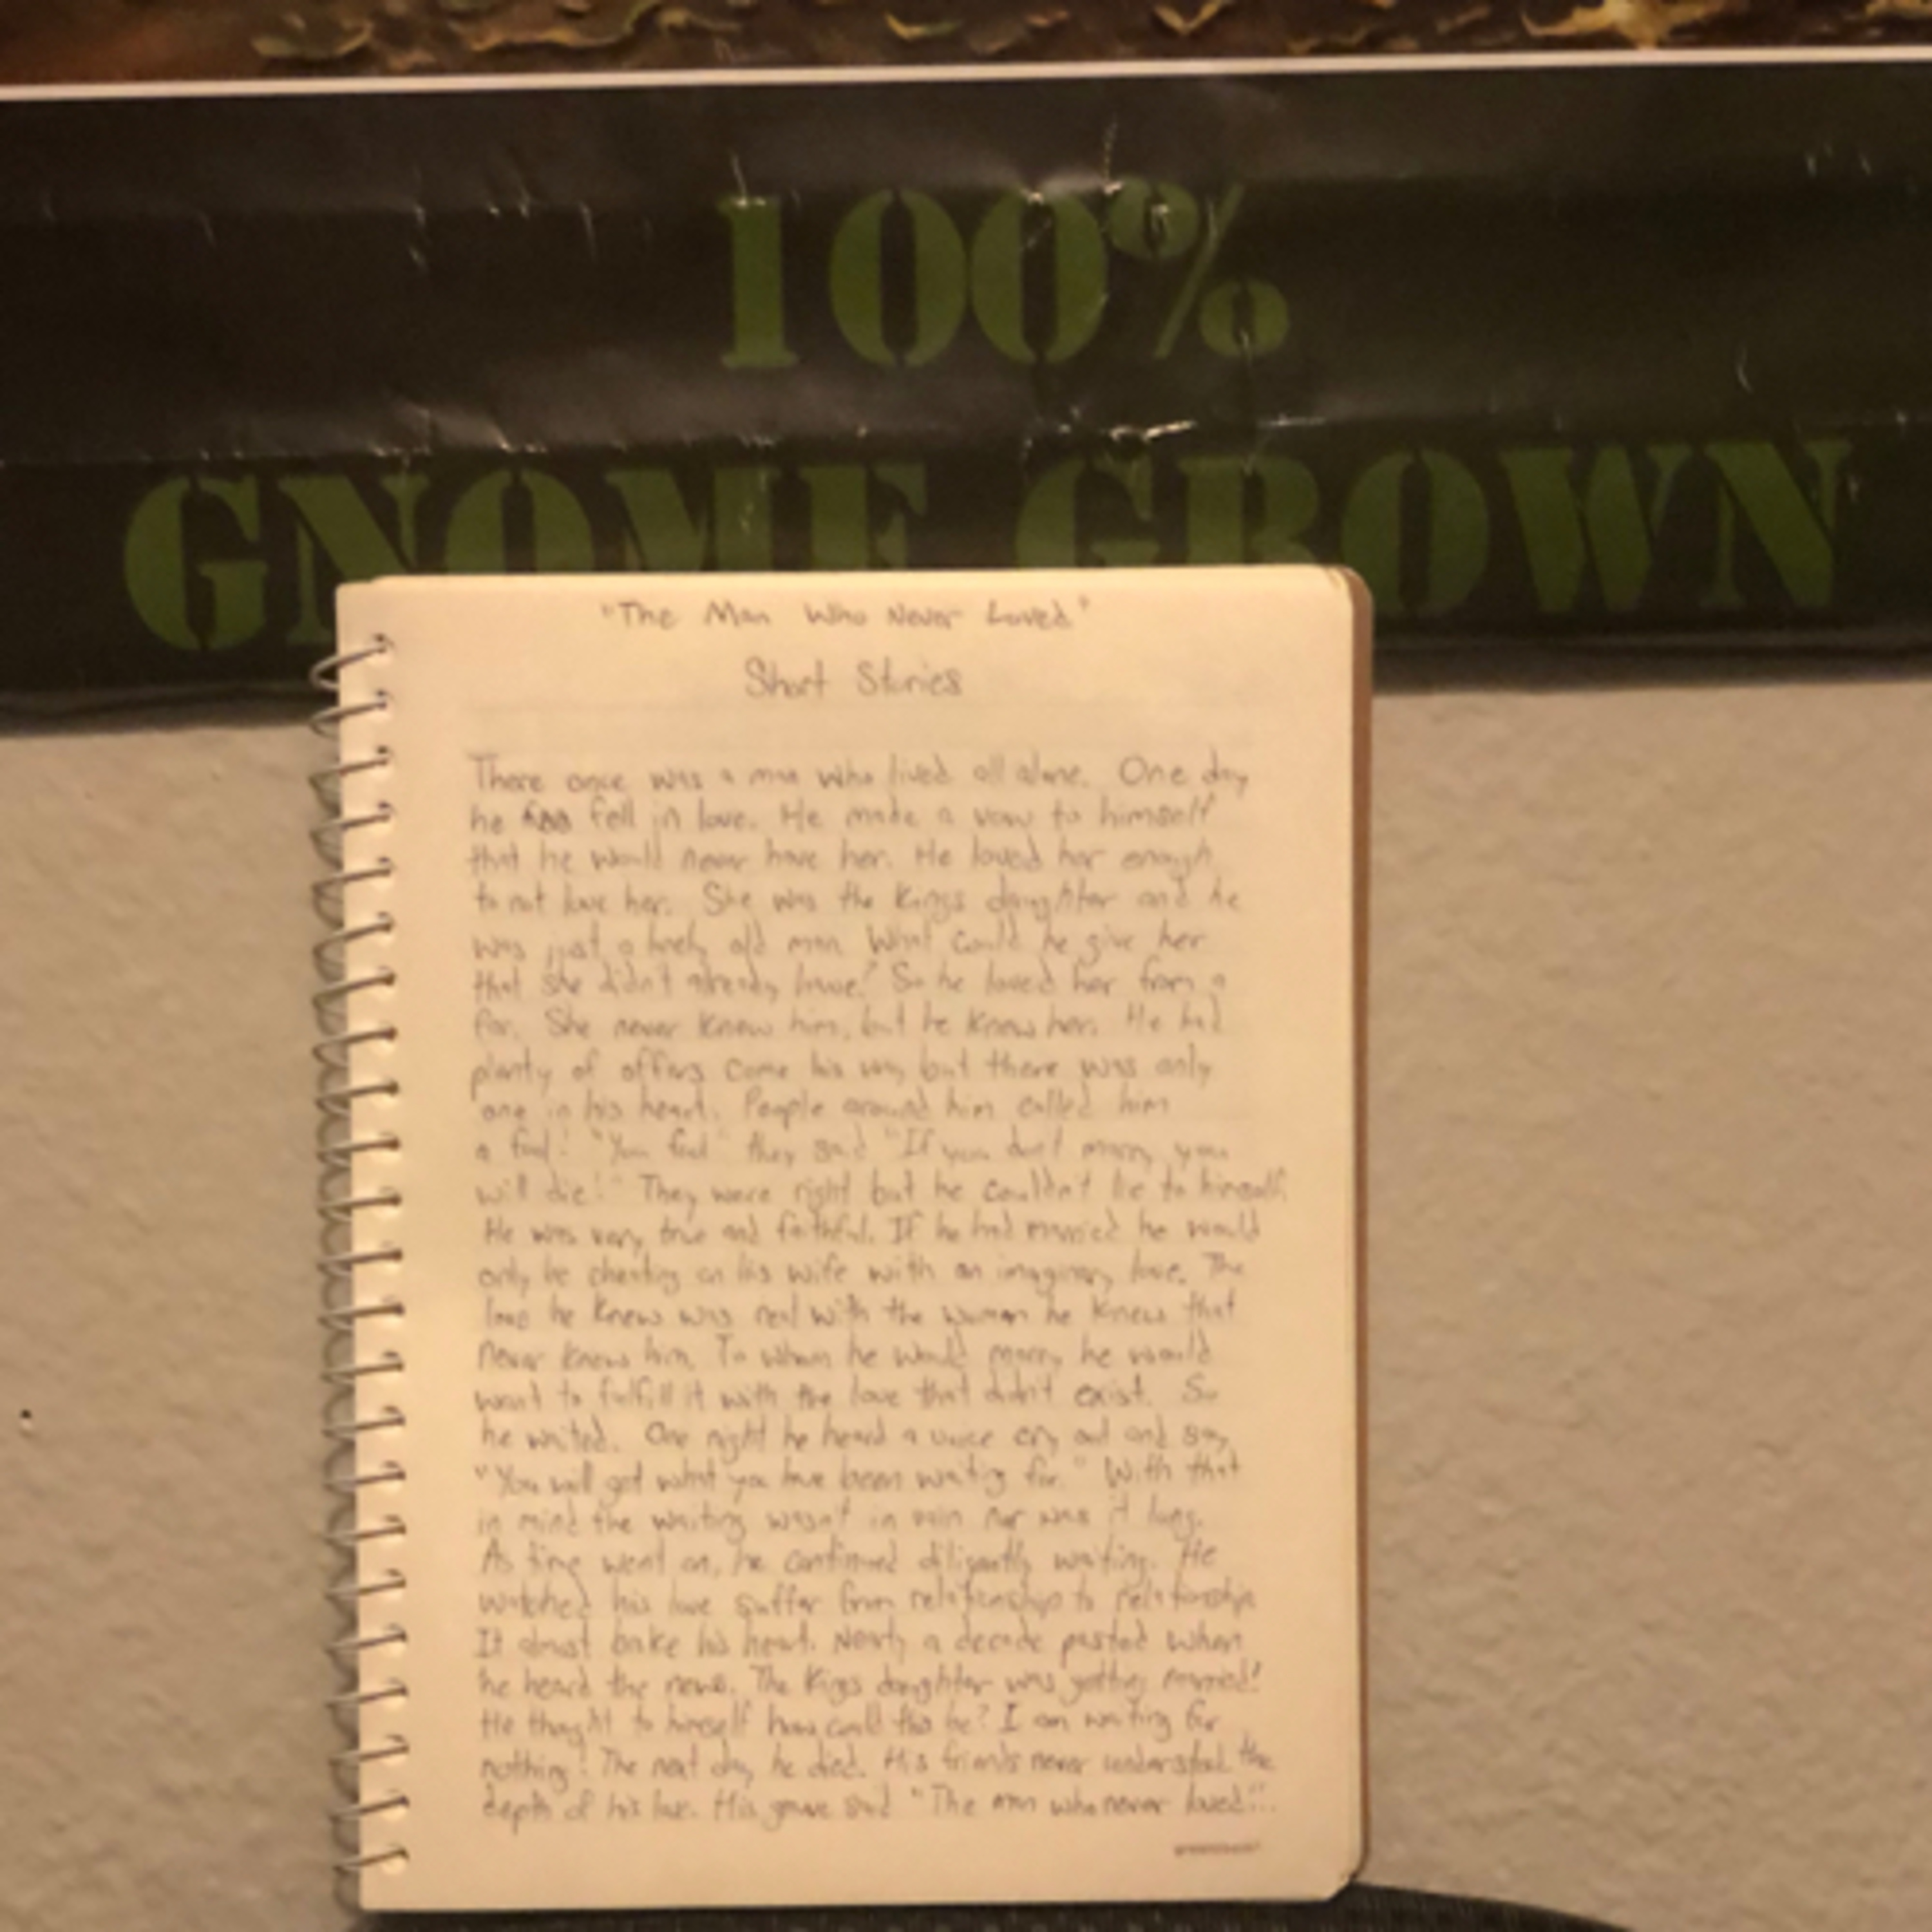 100%
GNOME GROWN
"The Man Who Never Loved"
Short Stories
There once was a man who lived all alone. One day
he fell in love. He made a vow to himself
that he would never have her. He loved her enough
to not love her. She was the Kings daughter and he
was just a lonely old man. What could he give her
that she didn't already have? So he loved her from a
far. She never knew him, but he knew her. He had
plenty of offers come his way but there was only
one in his heart. People around him called him
a fool! "You fool" they said "If you don't marry you
will die!" They were right but he couldn't lie to himself.
He was very true and faithful. If he had married he would
only be cheating on his wife with an imaginary love. The
love he knew was real with the woman he knew that
never knew him. To whom he would marry he would
want to fulfill it with the love that didn't exist. So
he waited. One night he heard a voice cry out and say
"You will get what you have been waiting for." With that
in mind the waiting wasn't in vain nor was it long.
As time went on, he continued diligently waiting. He
watched his love suffer from relationship to relationship
It almost broke his heart. Nearly a decade passed when
he heard the news. The Kings daughter was getting married!
He thought to himself how could this be? I am waiting for
nothing! The next day he died. His friends never understood the
depth of his love. His grave said "The man who never loved"..